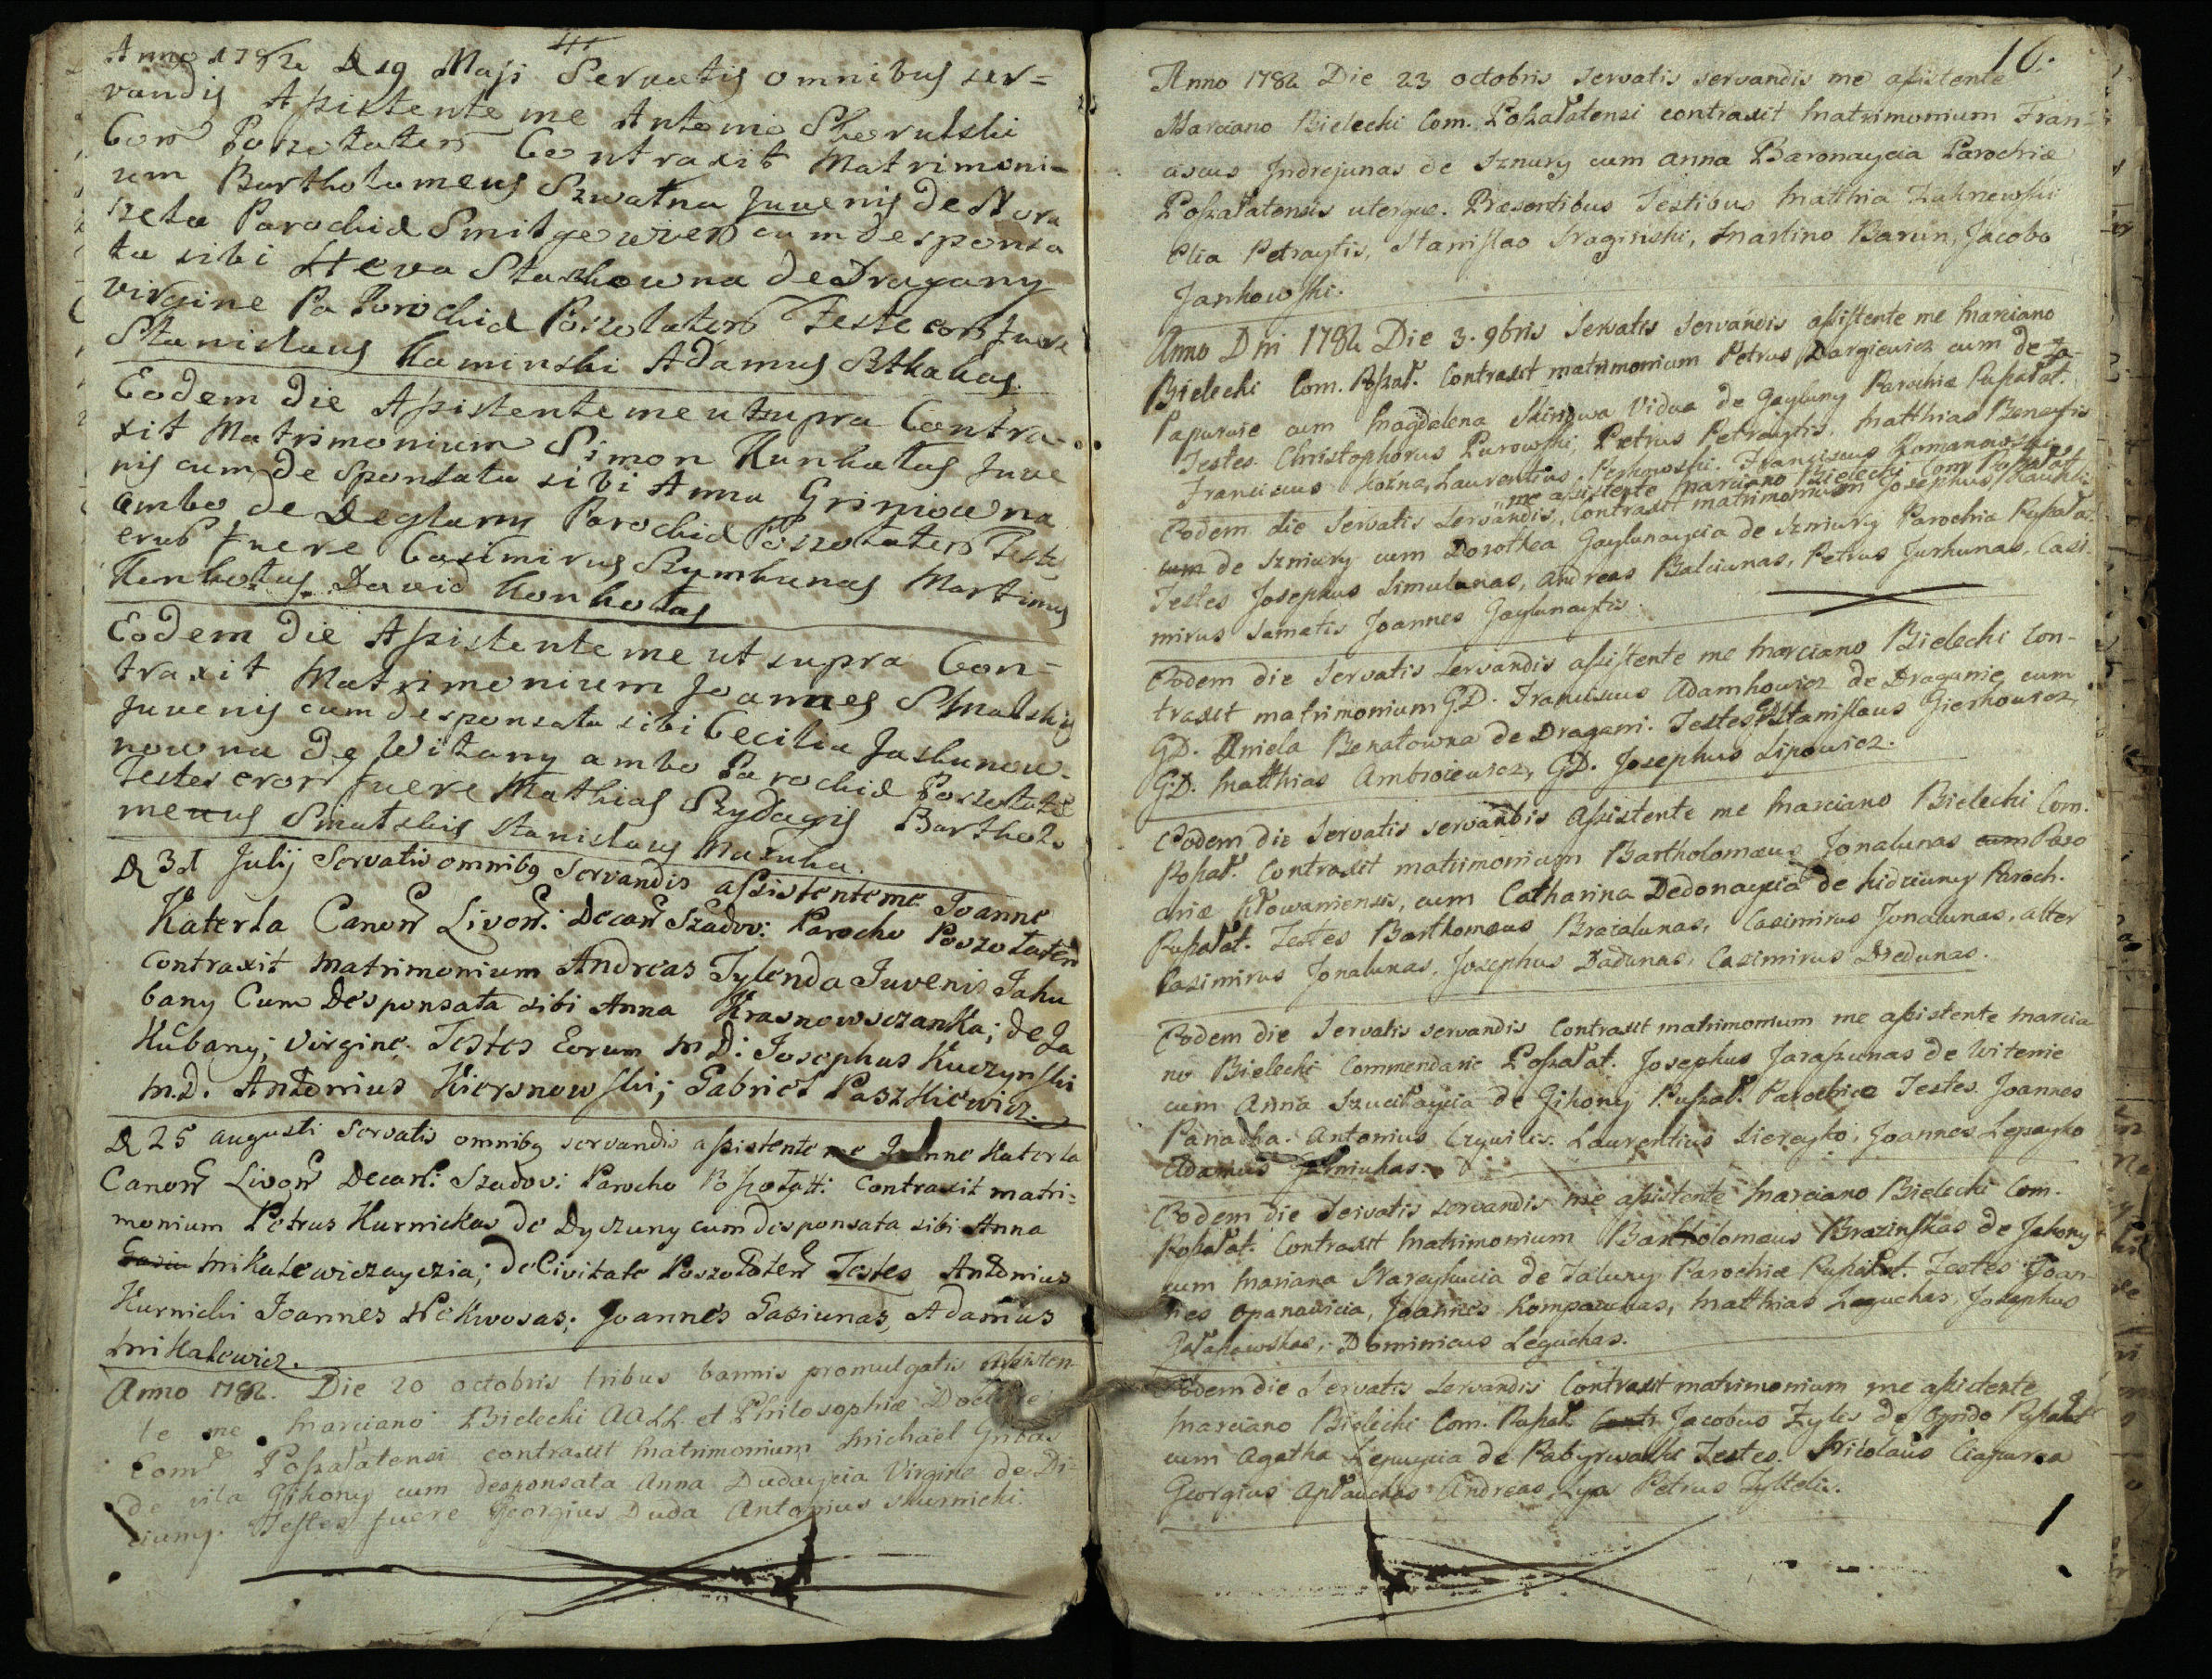 Anno 1782 D 19 Maji Servatis omnibus ser=
vandis Assistente me Antonio
Com Poszołaten Contraxit Matrimoni=
um Bartholomeus Szwatna Juvenis de Nora
Parochiæ cum desponsa
ta sibi Heva Staskowna de Dragany
virgine Pa Parochiæ Poszołaten Teste eor fuere
Stanislaus Kaminski Adamus
Eodem die Assistente me ut supra Contra-
xit Matrimonium Simon Kunkatas Juve
nis cum de sponsata sibi Anna Griniowna
ambo de Deglany Parochiæ Poszołaten Teste
erus fuere Casimirus Szymkunas Martinus
Kenkotas David Konkotas
Eodem die Assistente me ut supra Con=
traxit Matrimonium Joannes Smalskis
Juvenis cum desponsata sibi Cecilia Jaskunow-
nowna de Witany ambo Parochiæ Poszołate
Testes eror fuere Mathias Szydagis Bartholo
meus Smatskis Stanislaus Mazuka.
D 31 Julij Servatis omnibg Servandis assistente me Joanne
Katerla Canon Livon: Decan Szadov: Parocho Poszołaten
contraxit Matrimonium Andreas Tylenda Juvenis Jaku
bany Cum Desponsata sibi Anna Krasnowsczanka; de Ja
Kubany; virgine. Testes Eorum M D: Josephus Kuczynski
M.D. Antonius Kiersnowski; Gabriel Paszkiewicz.
D 25 augusti Servatis omnibg servandis assistente me Joanne Katerla
Canon Livon Decan: Szadov: Parocho Poszołatt: Contraxit matri=
monium Petrus Kurnickas de Dyczuny cum desponsata sibi Anna
Mikalewiczayczia; de Civitate Poszołaten Testes Antonius
Kurnicki Joannes Nekwosas; Joannes Gasiunas, Adamus
Mikalewicz.
Anno 1782. Die 20 octobris tribus bannis promulgatis Assisten
te me Marciano Bielecki AALL et Philosophiæ Doctore
Com Poszałatensi contraxit Matrimonium Michael Gribas
de vila Gikony cum desponsata Anna Dudaycia Virgine de Di=
ciuny. Testes fuere Georgius Duda Antonius Skurnicki.
16.
Anno 1782 Die 23 octobris servatis servandis me assistente
Marciano Bielecki Com. Poszałatensi contraxit Matrimonium Fran=
ciscus Jndrejunas de Sznury cum anna Baronaycia Parochiæ
Poszałatensis uterque. Præsentibus Testibus Matthia Zuknewski
Elia Petraytis, Stanislao Sragiński, Martino Barun, Jacobo
Jankowski.
Anno Dni 1782 Die 3. 9bris Servatis Servandis assistente me Marciano
Bielecki Com. Poszał. Contraxit matrimonium Petrus Dargiewicz cum de
Papurwie cum Magdalena Skirowa Vidua de Gayluny Parochiæ Puszałat.
Testes Christophorus Purowski, Petrus Petraytis, Matthias Benaytis
Franciscus Koźna, Laurentius. Franciscus Romanowski
me assistente Marciano Bielecki Com Poszałat
Eodem die Servatis Servandis, Contraxit matrimonium Josephus
cum de Szniury cum Dorothea Gaylunaycia de Szniury Parochia Puszała.
Testes Josephus Simulunas, andreas Balciunas, Petrus Jurkunas, Casi-
mirus Sametis Joannes Gaylunaytis.
Eodem die Servatis Servandis assistente me Marciano Bielecki Con-
traxit matrimonium GD. Franciscus Adamkowicz de Draganie cum
GD. Aniela Benatowna de Dragani. Testes GD Stanislaus Gierkowicz,
G.D. Matthias Ambroiewicz, GD. Josephus Lipowicz.
Eodem die Servatis servandis Assistente me Marciano Bielecki Com.
Poszał. Contraxit matrimonium Bartholomæus Jonalunas cum Paro
chiæ Kłowaniensis, cum Catharina Dedonaycia de Kidziuny Paroch.
Puszałat. Testes Barthomeus Bracalunas, Casimirus Jonalunas, alter
Casimirus Jonalunas, Josephus Dadunas, Casimirus Dzedunas.
Eodem die Servatis servandis Contraxit matrimonium me assistente Marcia
no Bielecki Commendario Poszałat. Josephus Jaraszunas de Witenie
cum Anna Szuciłaycia de Gikony Puszał. Parochiæ Testes. Joannes
Antonius Laurentius Joannes Lepayko
Adamus
Eodem die Servatis servandis me assistente Marciano Bielecki Com.
Poszałat. Contraxit Matrimonium Bartholomæus Brazinskas de Jakony
cum Mariana Nareykucia de Taluny Parochiæ Puszałat. Testes Joan-
nes Opanavicia, Joannes Kompawnas, Matthias Leguckas Josephus
Gałapowskas, Dominicus Leguckas.
Eodem die Servatis Servandis Contraxit matrimonium me assistente
Marciano Bielecki Com. Puszał. Jacobus Zyles de Oyndo
cum Agatha Lepuycia de Pabyrwałki Testes. Nicolaus Ciapurea
Georgius Aptauckas Andreas Petrus Zyltelis.